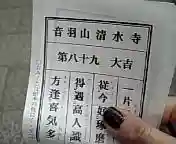 音羽山清水寺
第八十九 大吉
一片
從今好琢磨
得遇高人識
方逢喜氣多